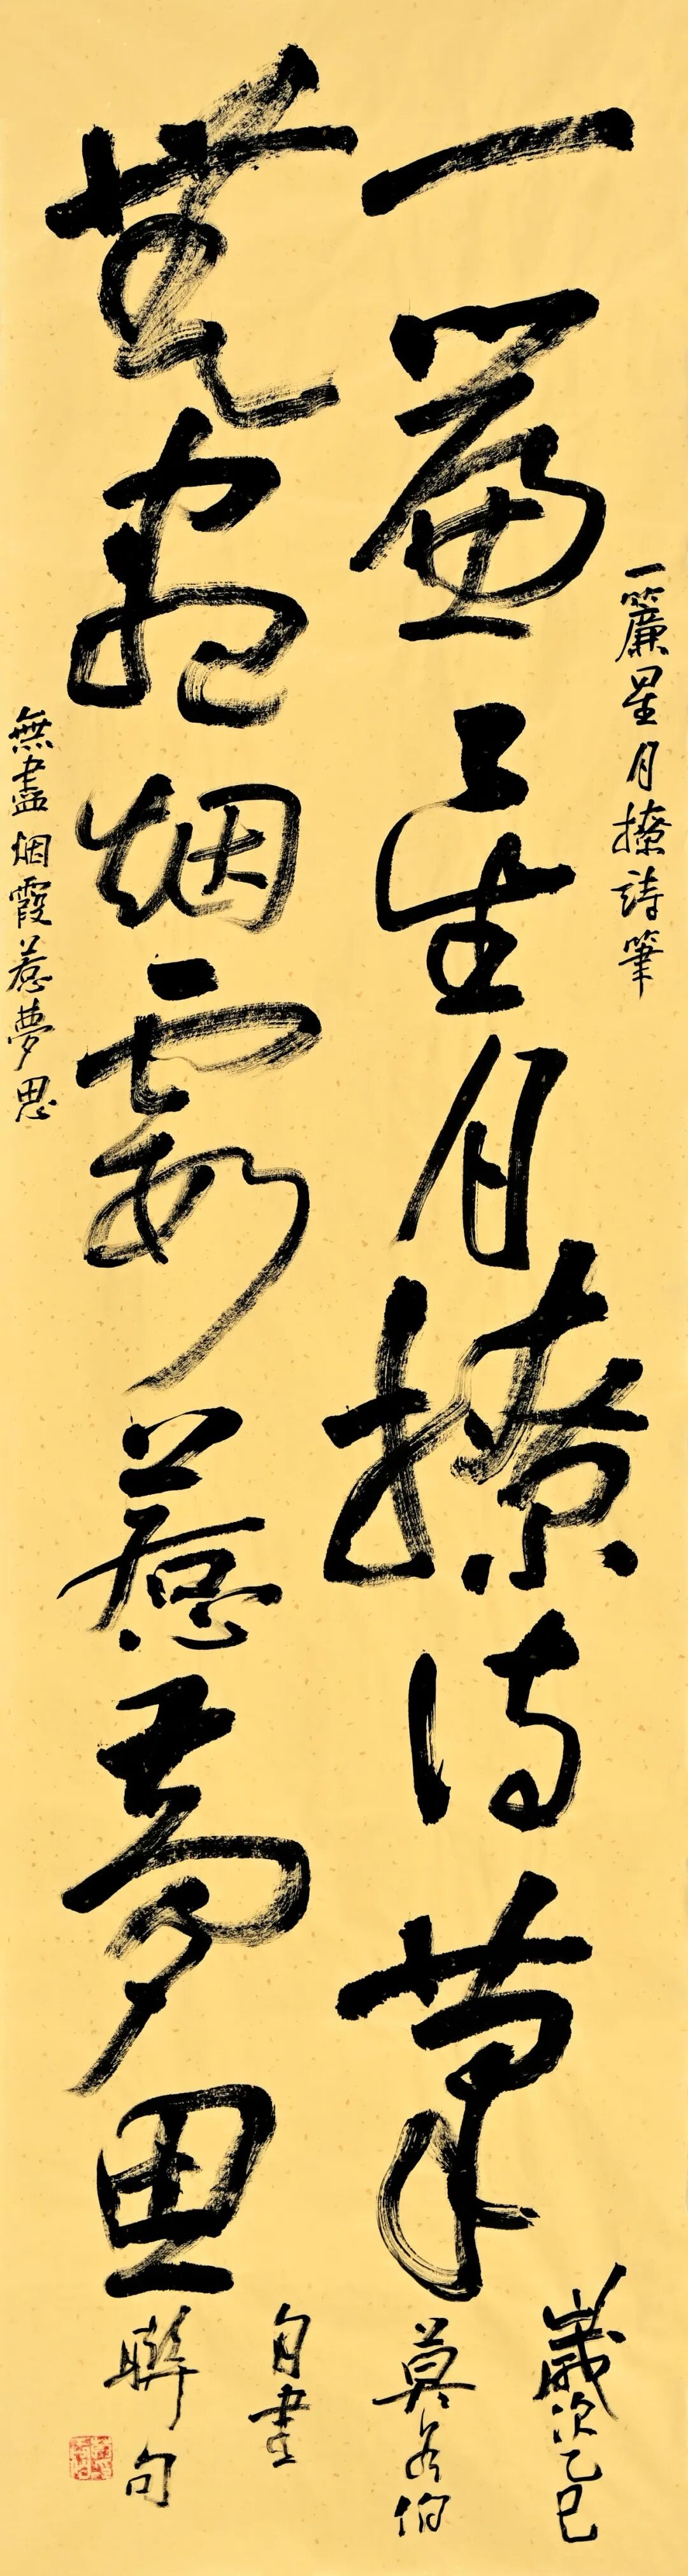 一簾星月撩詩筆
一簾星月撩詩筆
無盡烟霞惹夢思
無盡烟霞惹夢思
歲次乙巳
莫各伯
自書
聯句